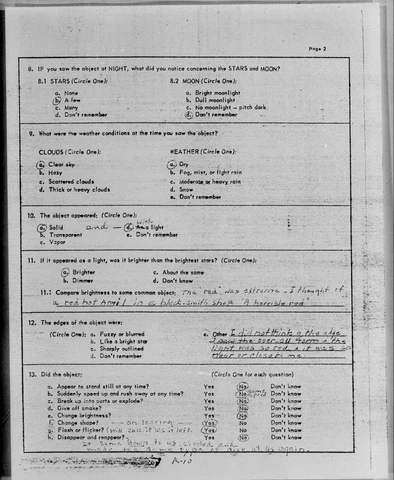 Page 2
8. IF you saw the object at NIGHT, what did you notice concerning the STARS and MOON?
8.1 STARS (Circle One): 8.2 MOON (Circle One):
a. None a. Bright moonlight
b. A few b. Dull moonlight
c. Many c. No moonlight – pitch dark
d. Don't remember d. Don't remember
9. What were the weather conditions at the time you saw the object?
CLOUDS (Circle One): WEATHER (Circle One):
a. Clear sky a. Dry
b. Hazy b. Fog, mist, or light rain
c. Scattered clouds c. Moderate or heavy rain
d. Thick or heavy clouds d. Snow
e. Don't remember
10. The object appeared: (Circle One):
with
a. Solid and – d. As a light
b. Transparent e. Don't remember
c. Vapor
11. If it appeared as a light, was it brighter than the brightest stars? (Circle One):
a. Brighter c. About the same
b. Dimmer d. Don't know
11.1 Compare brightness to some common object: The red was extreme - I thought of
a red hot in a black-smith shop "A horrible red"
12. The edges of the object were:
(Circle One): a. Fuzzy or blurred e. Other I did not think of the edge
b. Like a bright star I saw the over-all form & the
c. Sharply outlined light was so red & it was so
d. Don't remember near or close to me
13. Did the object: (Circle One for each question)
a. Appear to stand still at any time? Yes No Don't know
b. Suddenly speed up and rush away at any time? Yes No Don't know
c. Break up into parts or explode? Yes No Don't know
d. Give off smoke? Yes No Don't know
e. Change brightness? Yes No Don't know
f. Change shape? – on leaving – Yes No Don't know
g. Flash or flicker? Yes No Don't know
h. Disappear and reappear? Yes No Don't know
It came to us, circled and
made the same type of at us again.
A-10